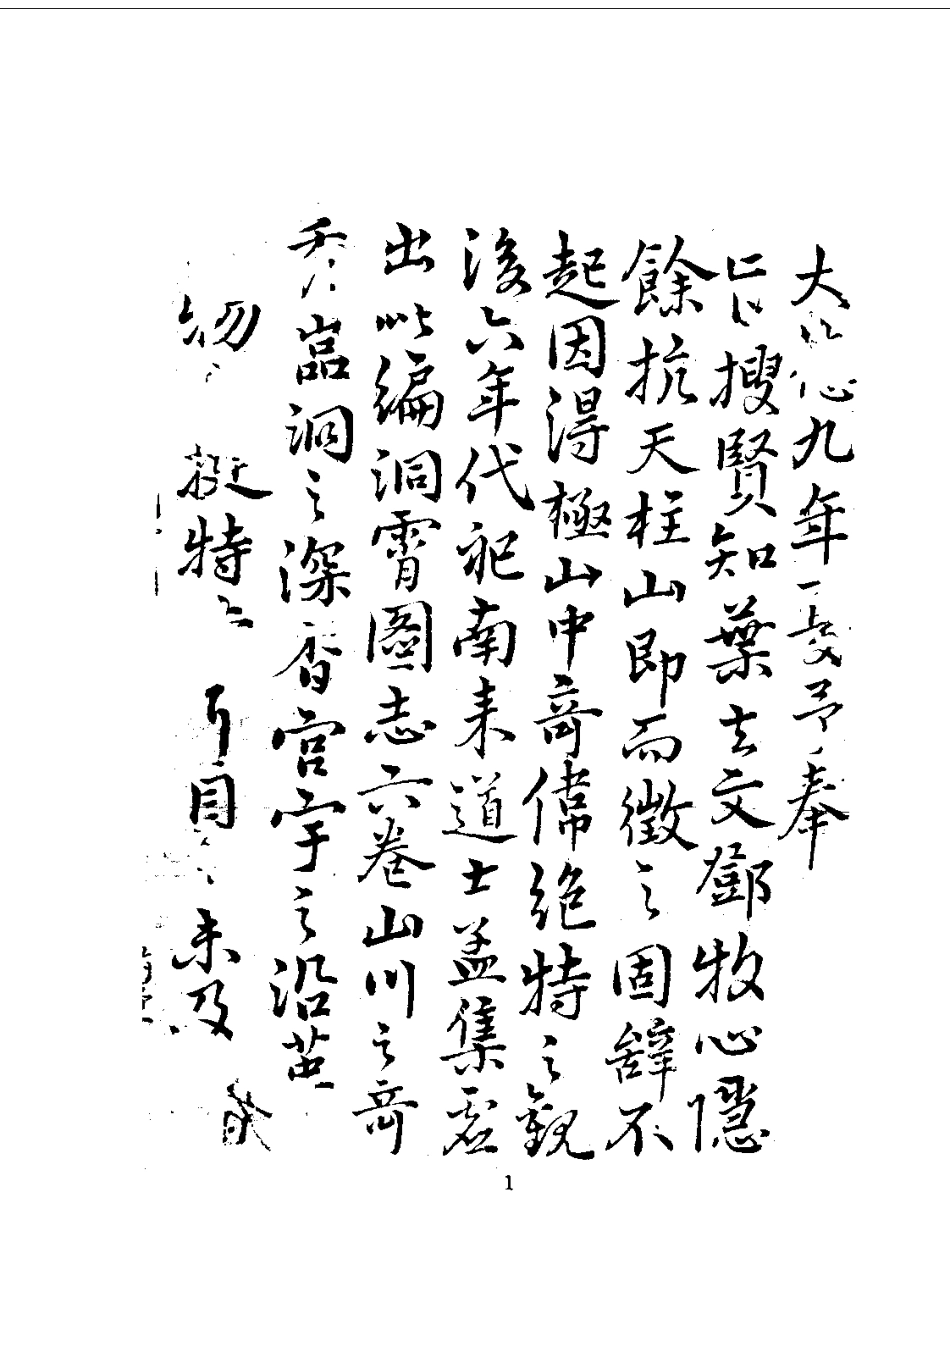 大德九年夏予奉
旨搜賢知葉玄文鄧牧心隱
餘抗天柱山即而徵之固辭不
起因得極山中奇偉絕特之觀
後六年代祀南來道士孟集虛
出此編洞霄圖志六卷山川之奇
秀嵓洞之深杳宮宇之沿革
物 挺特 耳目 未及